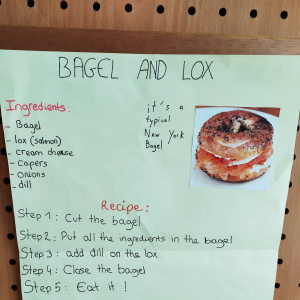 BAGEL AND LOX
Ingredients:
- Bagel
- lox (salmon)
- cream cheese
- capers
- onions
- dill
it's a
typical
New York
Bagel
Recipe:
Step 1: Cut the bagel
Step 2: Put all the ingredients in the bagel
Step 3: add dill on the lox
Step 4: Close the bagel
Step 5: Eat it !